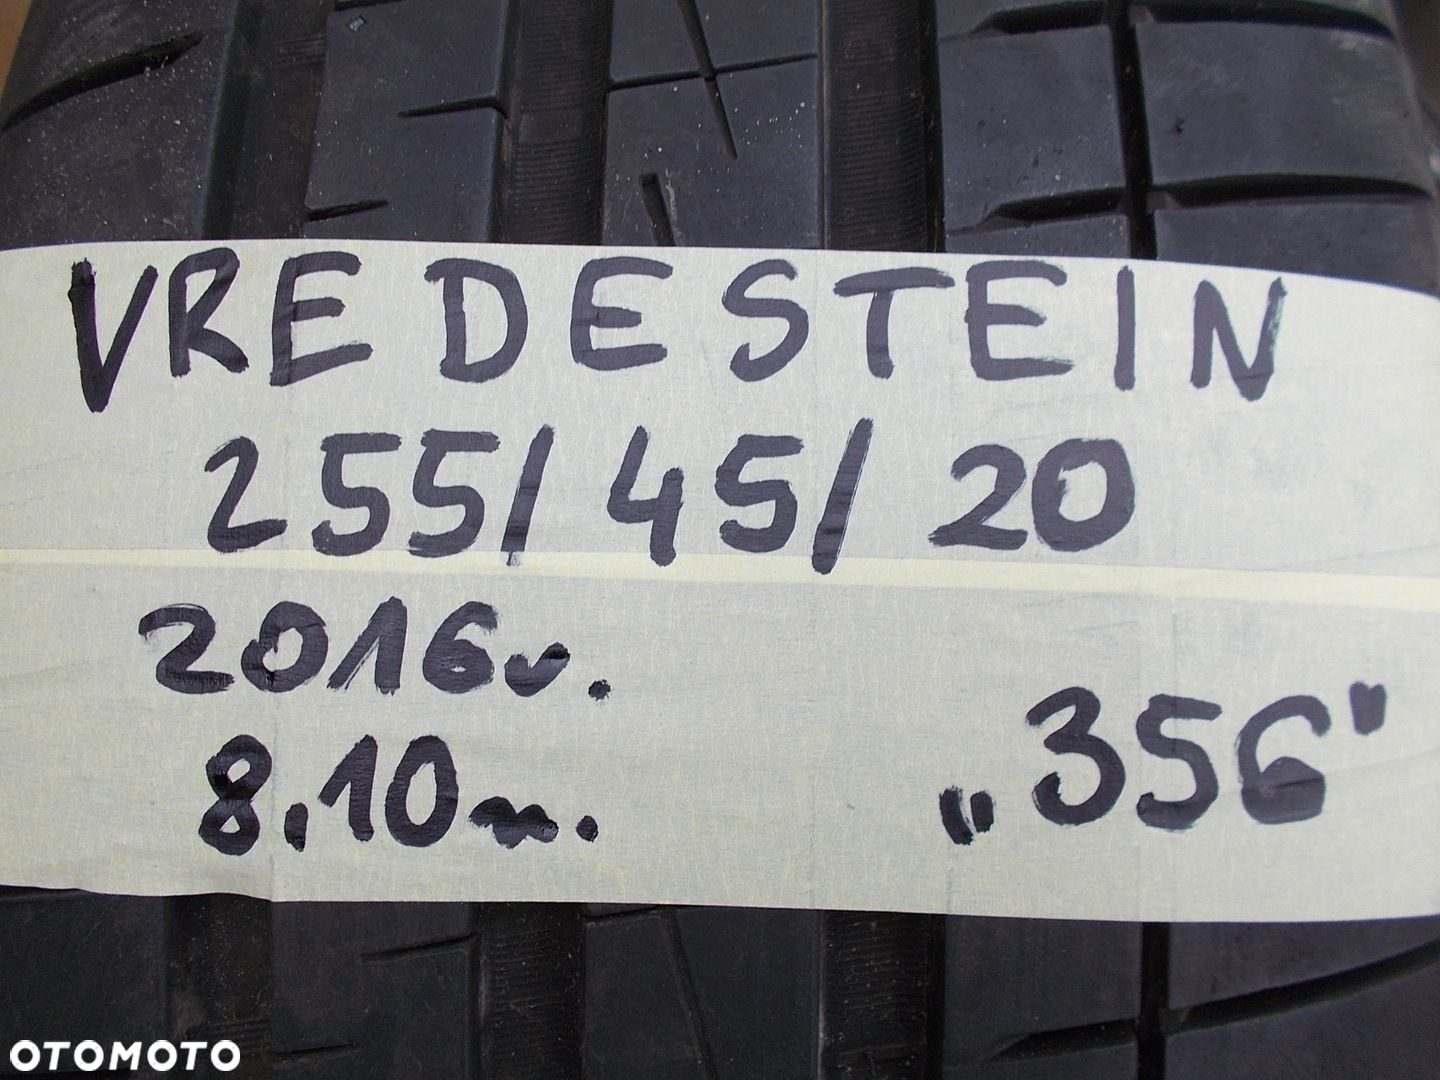 VREDESTEIN
255/45/20
2016r.
8,10m.
„356"
OTOMOTO